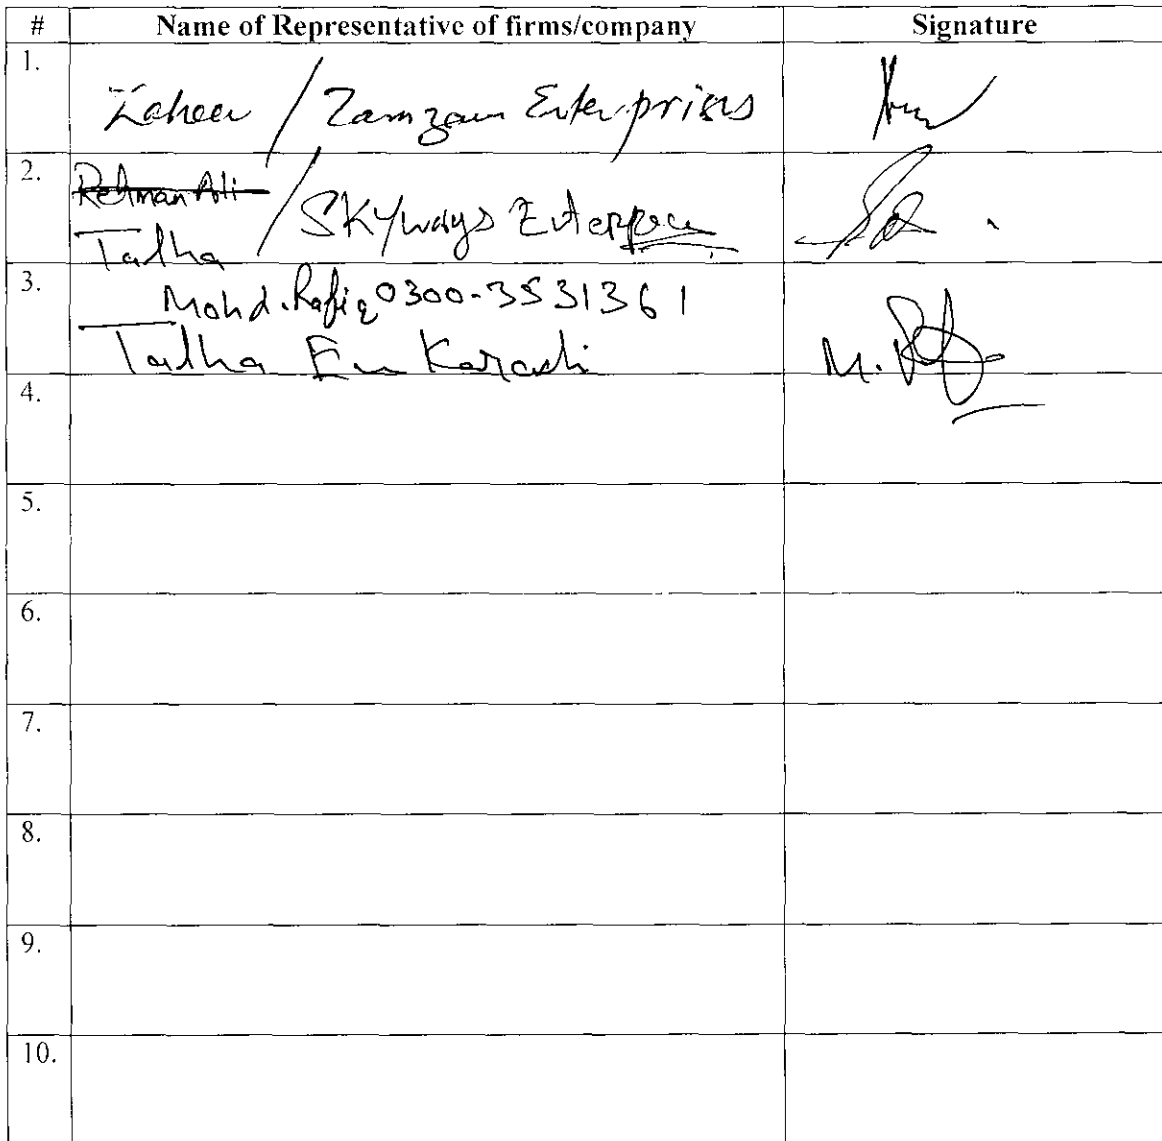 # Name of Representative of firms/company Signature
1. Zaheer / Zamzam Enterprises
2. Rehman Ali
Talha / SKYways Enterprises
3. Mohd. Rafiq 0300-3531361
Talha En Karachi M. Rafiq
4.
5.
6.
7.
8.
9.
10.